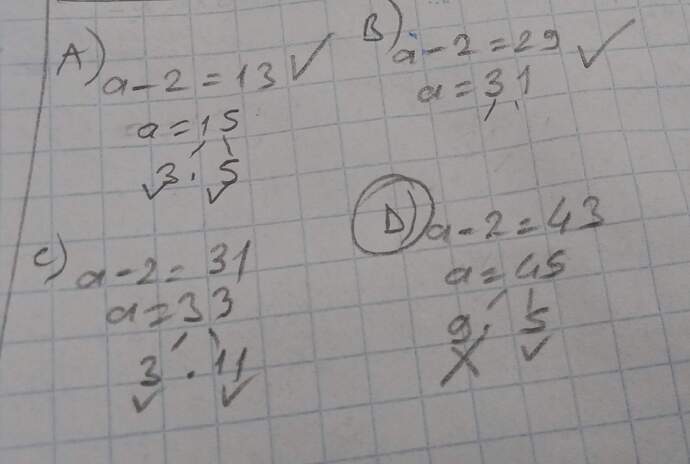 A) a-2=13 ✓
a=15
3 · 5
✓ ✓
B) a-2=29 ✓
a=31
C) a-2=31
a=33
3 · 11
✓ ✓
D) a-2=43
a=45
9 · 5
X ✓